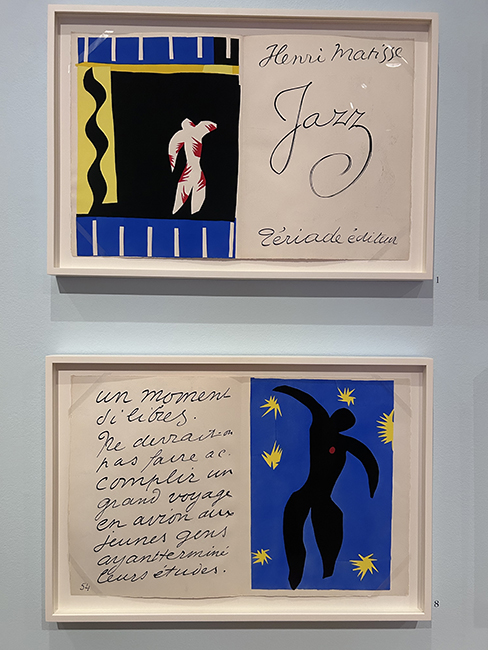 Henri Matisse
Jazz
Tériade éditeur
1
un moment
di libres.
Ne devrait-on
pas faire ac-
complir un
grand voyage
en avion aux
jeunes gens
ayant terminé
leurs études.
54
8